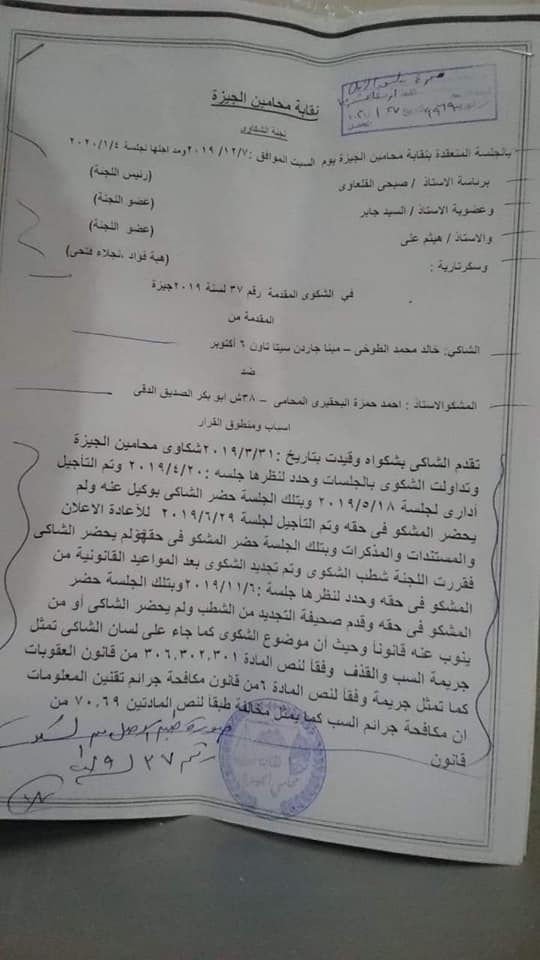 نقابة محامين الجيزة
لجنة الشكاوى
بالجلسة المنعقدة بنقابة محامين الجيزة يوم السبت الموافق :٢٠١٩/١٢/٧ ومد اجلها لجلسة ٢٠٢٠/١/٤
برئاسة الاستاذ / صبحى القلعاوى (رئيس اللجنة)
وعضوية الاستاذ / السيد جابر (عضو اللجنة)
والاستاذ / هيثم على (عضو اللجنة)
وسكرتارية : (هبة فؤاد ،نجلاء فتحى)
في الشكوى المقدمة رقم ٣٧ لسنة ٢٠١٩جيزة
المقدمة من
الشاكي: خالد محمد الطوخى – مينا جاردن سيتا تاون ٦ أكتوبر
ضد
المشكوالاستاذ : احمد حمزة البحقيرى المحامى – ٣٨ش ابو بكر الصديق الدقى
اسباب ومنطوق القرار
تقدم الشاكى بشكواه وقيدت بتاريخ :٢٠١٩/٣/٣١شكاوى محامين الجيزة
وتداولت الشكوى بالجلسات وحدد لنظرها جلسه :٢٠١٩/٤/٢٠ وتم التأجيل
أدارى لجلسة ٢٠١٩/٥/١٨ وبتلك الجلسة حضر الشاكى بوكيل عنه ولم
يحضر المشكو فى حقه وتم التأجيل لجلسة ٢٠١٩/٦/٢٩ للأعادة الاعلان
والمستندات والمذكرات وبتلك الجلسة حضر المشكو فى حقه ولم يحضر الشاكى
فقررت اللجنة شطب الشكوى وتم تجديد الشكوى بعد المواعيد القانونية من
المشكو فى حقه وحدد لنظرها جلسة :٢٠١٩/١١/٦ وبتلك الجلسة حضر
المشكو فى حقه وقدم صحيفة التجديد من الشطب ولم يحضر الشاكى أو من
ينوب عنه قانوناً وحيث أن موضوع الشكوى كما جاء على لسان الشاكى تمثل
جريمة السب والقذف وفقاً لنص المادة ٣٠٦،٣٠٢،٣٠١ من قانون العقوبات
كما تمثل جريمة وفقاً لنص المادة ٦من قانون مكافحة جرائم تقنين المعلومات
ان مكافحة جرائم السب كما يمثل مخالفة طبقاً لنص المادتين ٧٠،٦٩ من
قانون
صورة طبق الاصل من
رقم ٣٧ لـ